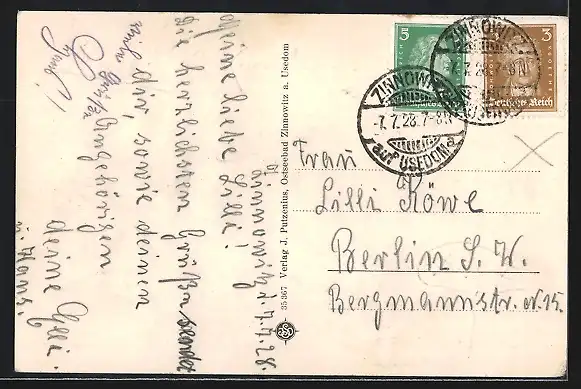 Zinnowitz, d. 7.7.28.
Meine liebe Lilli!
Die herzlichsten Grüße sendet
dir, sowie deinen
Angehörigen
deine Elli.
u. Hans.
viele Grüße
35367 Verlag J. Putzenius, Ostseebad Zinnowitz a. Usedom
5
3
Deutsches Reich
ZINNOWITZ
-7.7.28.7-8N
auf USEDOM
a
ZINNOWITZ
Frau
Lilli Röwe
Berlin S. W.
Bergmannstr. N. 15.